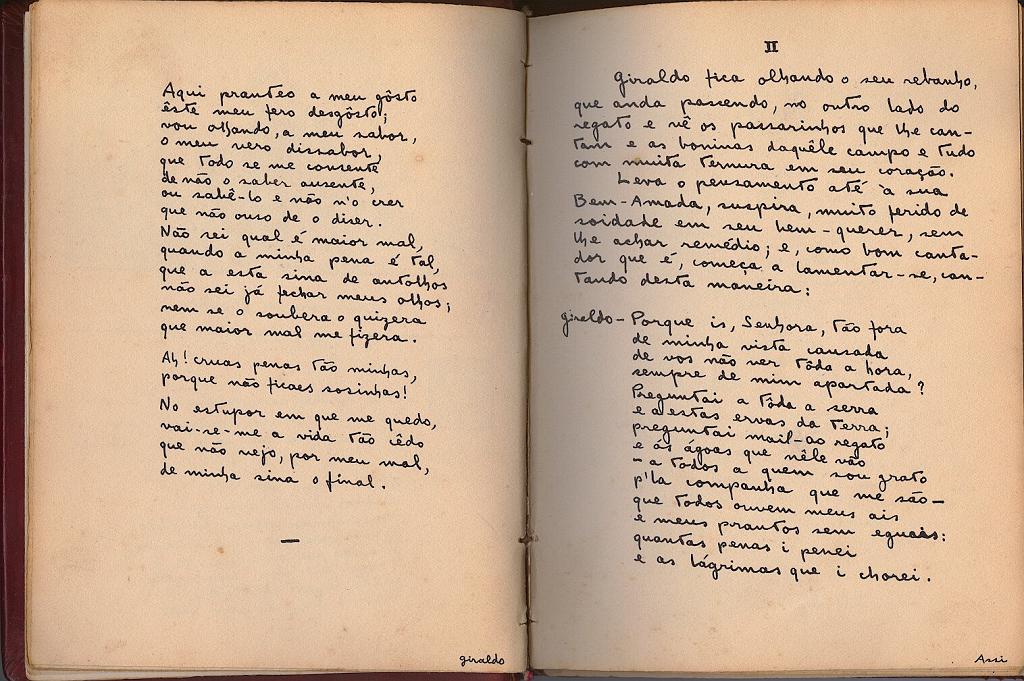 Aqui pranteo a meu gôsto
êste meu fero desgôsto;
vou olhando, a meu sabor,
o meu vero dissabor,
que todo se me consente
de não o saber ausente,
ou sabê-lo e não n'o crer
que não ouso de o diser.
Não sei qual é maior mal,
quando a minha pena é tal,
que a esta sina de antolhos
não sei já fechar meus olhos;
nem se o soubera o quizera
que maior mal me fizera.
Ah! cruas penas tão minhas,
porque não ficaes sosinhas!
No estupor em que me quedo,
vai-se-me a vida tão cêdo
que não vejo, por meu mal,
de minha sina o final.
—
giraldo
II
Giraldo fica olhando o seu rebanho,
que anda pascendo, no outro lado do
regato e vê os passarinhos que lhe can-
tam e as boninas daquêle campo e tudo
com muita ternura em seu coração.
Leva o pensamento até à sua
Bem-Amada, suspira, muito ferido de
soidade em seu bem-querer, sem
lhe achar remédio; e, como bom canta-
dor que é, começa a lamentar-se, can-
tando desta maneira:
giraldo - Porque is, Senhora, tão fora
de minha vista causada
de vos não ver tôda a hora,
sempre de mim apartada?
Preguntai a tôda a serra
e a estas ervas da terra;
preguntai mail-ao regato
e ás ágoas que nêle vão
- a todos a quem sou grato
p'la companha que me são -
que todos ouvem meus ais
e meus prantos sem eguais:
quantas penas i penei
e as lágrimas que i chorei.
Assi